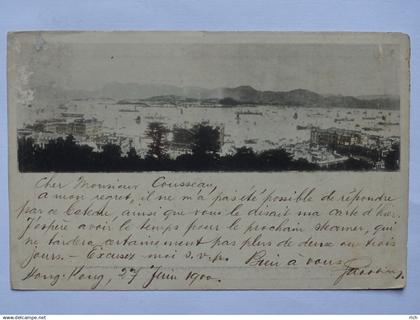 Cher Monsieur Cousseau,
A mon regret, il ne m'a pas été possible de répondre
par ce bateau, ainsi que vous le disait ma carte d'hier.
J'espère avoir le temps pour le prochain steamer, qui
ne tardera certainement pas plus de deux ou trois
jours. — Excusez moi s.v.p. Bien à vous
Hong-Kong, 27 Juin 1900.